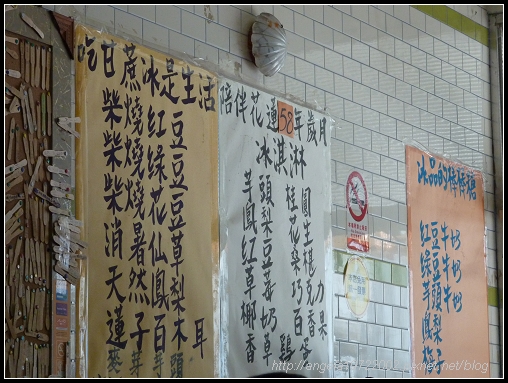 吃甘蔗冰是生活
柴燒紅豆
柴燒綠豆
柴燒花豆
柴燒仙草
消暑鳳梨
陪伴花蓮58年歲月
冰淇淋
芋頭
鳳梨 花生
紅豆 桑椹
草莓 巧克力
椰奶 百香果
香草
冰品的棒棒糖
紅豆牛奶
綠豆牛奶
芋頭牛奶
鳳梨
梅子